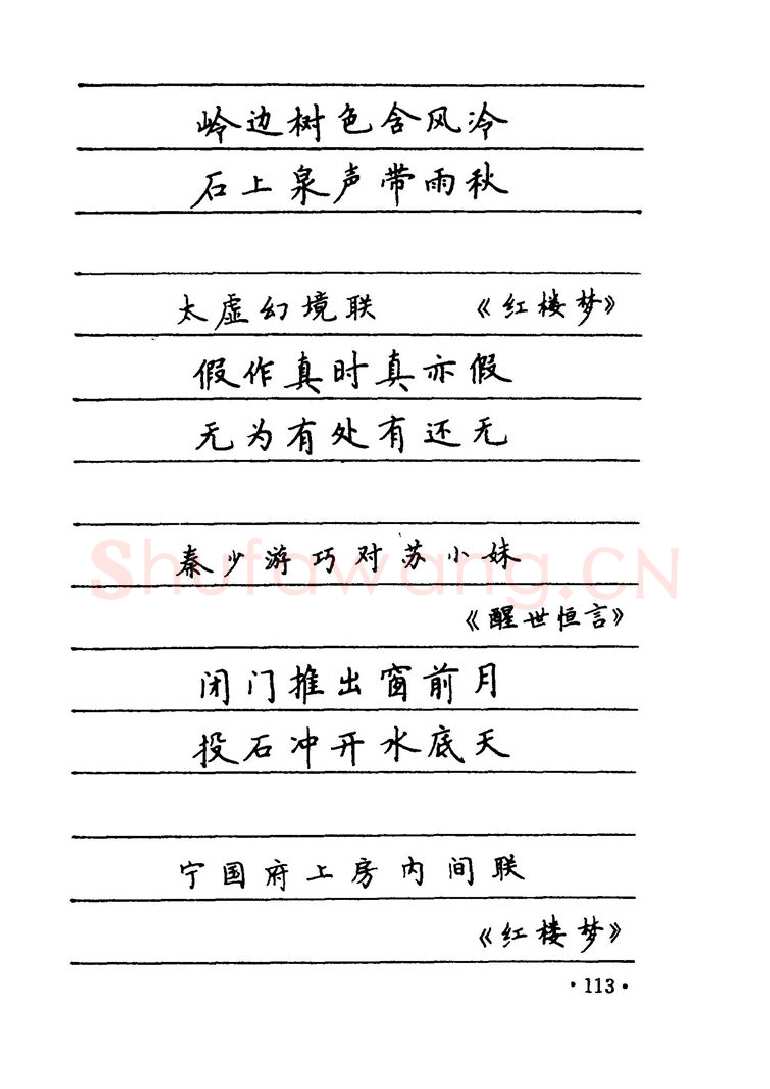 岭边树色含风冷
石上泉声带雨秋
太虚幻境联 《红楼梦》
假作真时真亦假
无为有处有还无
秦少游巧对苏小妹
Shufawang.CN
《醒世恒言》
闭门推出窗前月
投石冲开水底天
宁国府上房内间联
《红楼梦》
·113·